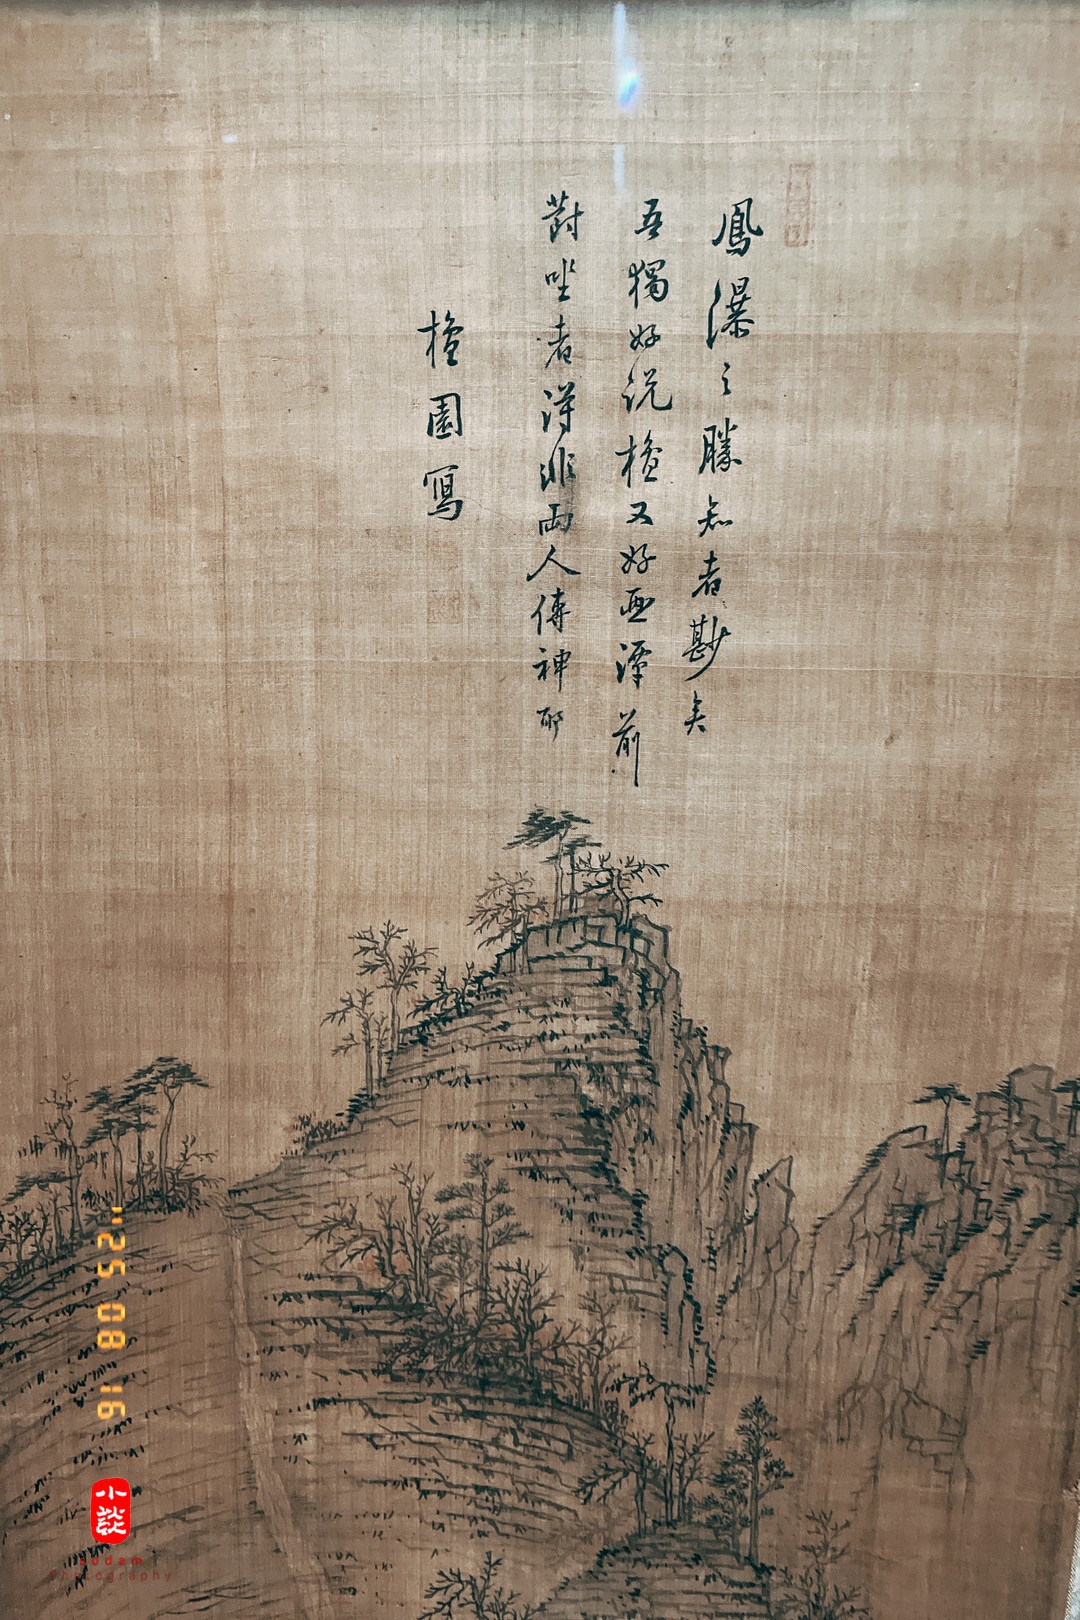 鳳瀑之勝知者尠矣
吾獨好説檀又好画潭前
對坐者得非兩人傳神耶
檀園寫
'25 08 16
小談
Photography